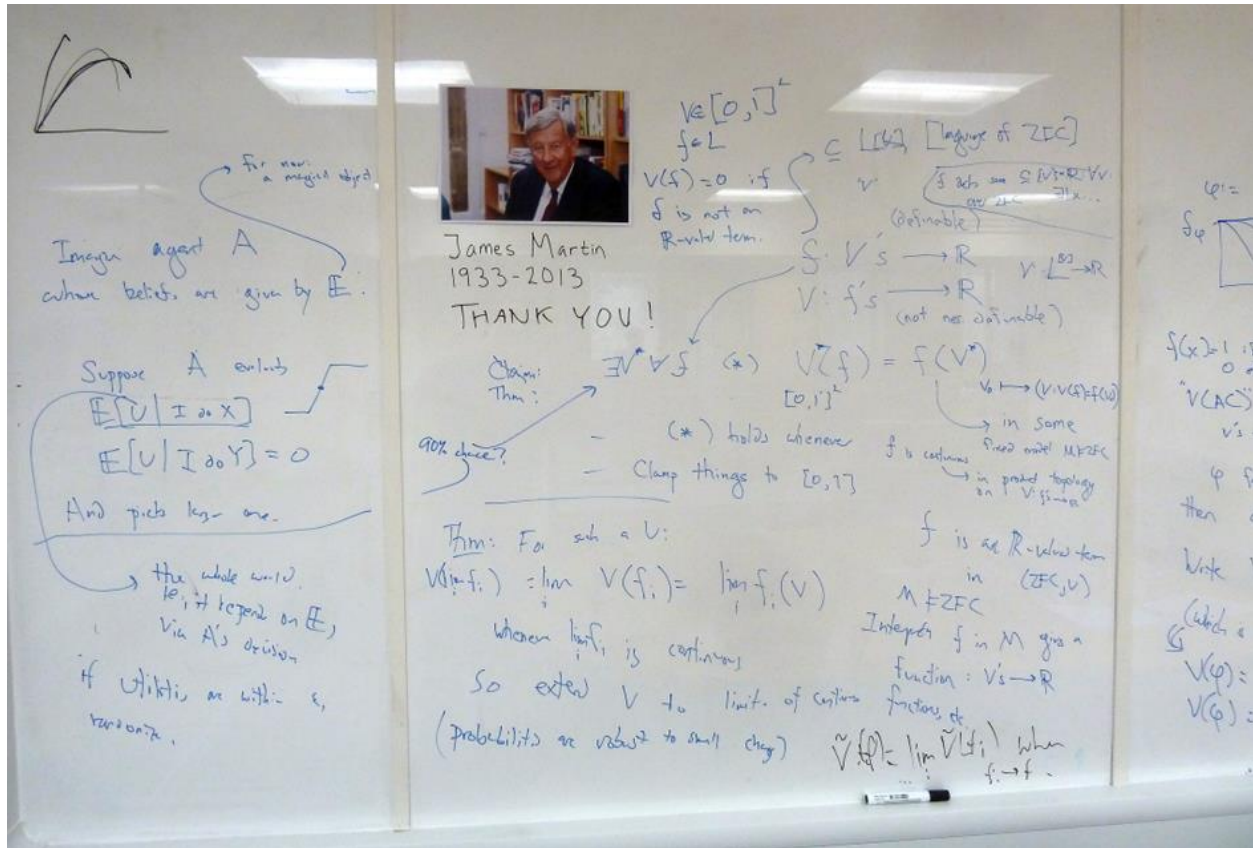 for now:
a magical object
Imagine agent A
whose beliefs are given by 𝔼:
Suppose A evaluates
𝔼[U | I do X]
𝔼[U | I do Y] = 0
And picks larger one.
the whole world.
ie, it depend on 𝔼,
via A's decision
if utilities are within ε,
randomize.
James Martin
1933-2013
THANK YOU!
V∈[0,1]^L
f∈L
V(f)=0 if
f is not an
ℝ-valued term.
⊆ [language of ZFC]
(definable)
f: V's → ℝ
V: f's → ℝ
(not nec. definable)
Claim:
Thm:
∃V* ∀f (*) V*(f) = f(V*)
[0,1]^L
90% chance?
- (*) holds whenever
f is continuous
- Clamp things to [0,1]
in some
fixed model M⊨ZFC
in product topology
on V: f's→ℝ
Thm: For such a V:
V(lim f_i) = lim_i V(f_i) = lim_i f_i(V)
whenever lim_i f_i is continuous
So extend V to limits of continuous functions, etc
(probabilities are robust to small change)
f is an ℝ-valued term
in (ZFC, V)
M⊨ZFC
Interpret f in M gives a
function: V's → ℝ
Ṽ(f) = lim_i Ṽ(f_i) when
f_i → f.
φ:=
f_φ
f(x)=1 if
0
"V(AC)
V's
then
Write
(which is
V(φ)=
V(φ)=